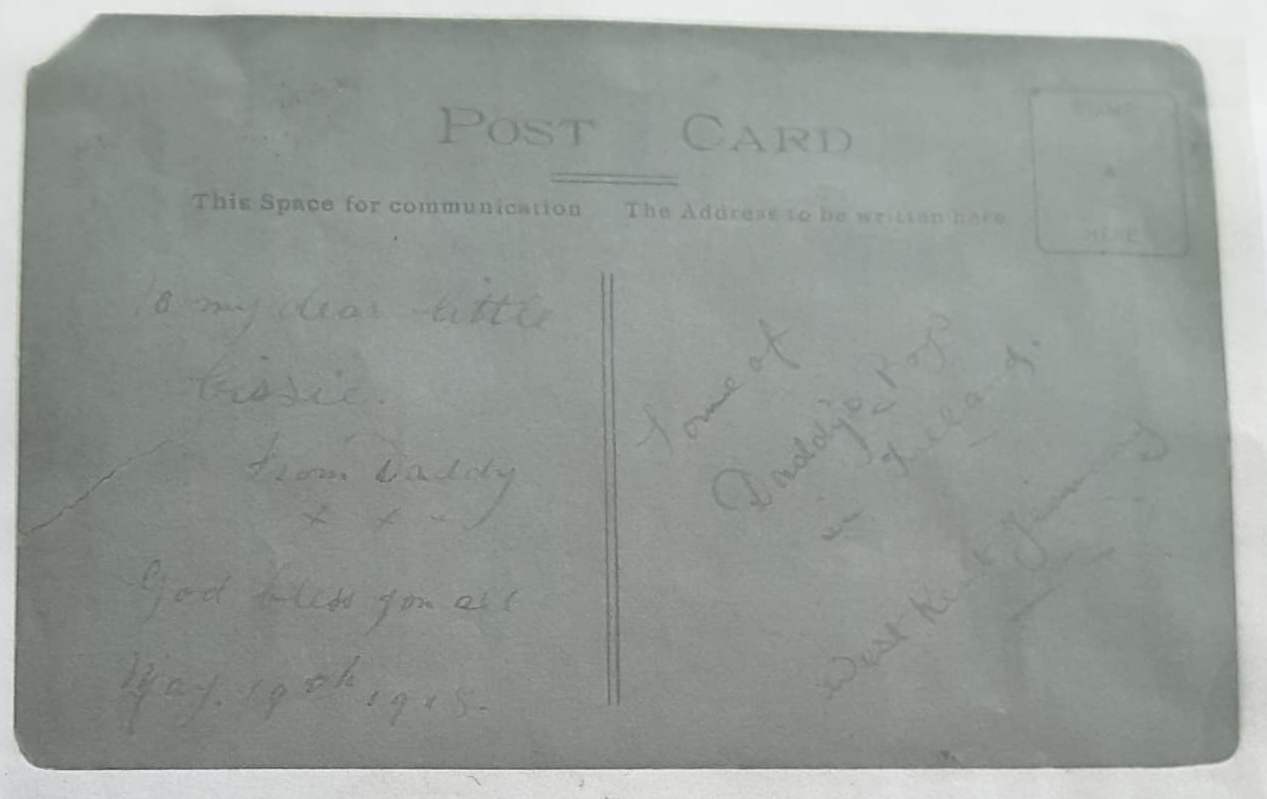 POST CARD
This Space for communication
The Address to be written here
STAMP
HERE
To my dear little
from Daddy
x x x
God bless you all
May. 19th
Some of
Daddy's Boys
in Ireland.
West Kent Yeomanry